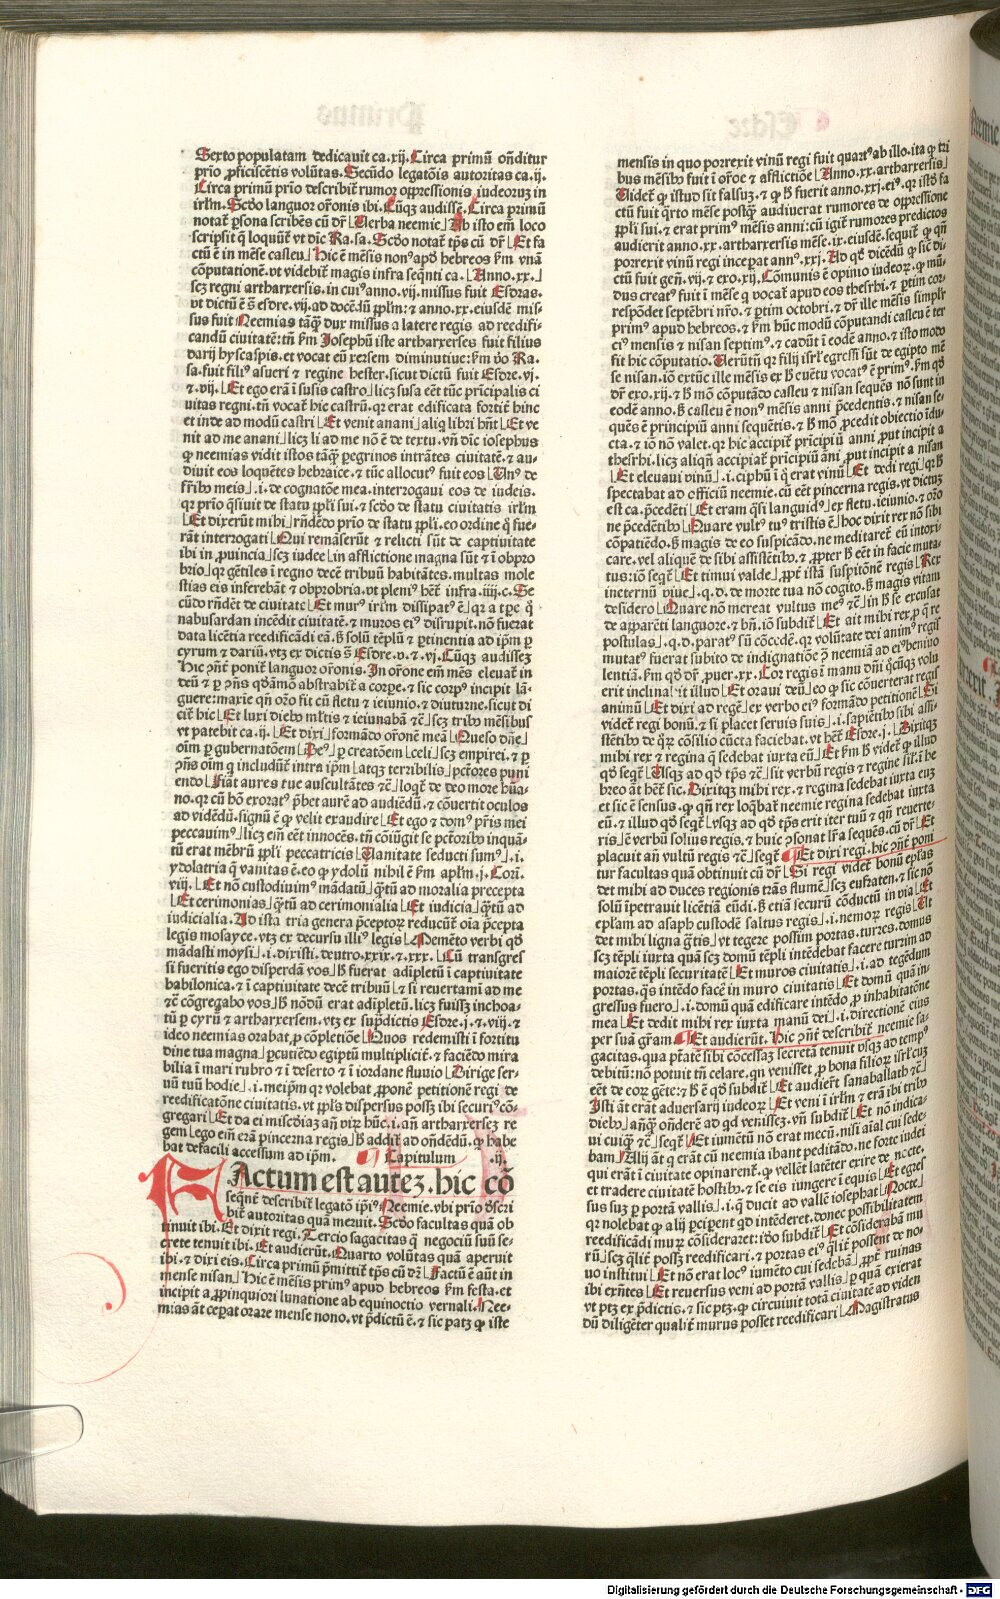 Sexto populatam dedicauit ca.xij. Circa primū oñditur
prio ꝓficiscētis volūtas. Secūdo legatōis autoritas ca.ij.
Circa primū prio describit̄ rumor oppressionis iudeorum in
irl̄m. Scd̄o languor or̄onis ibi. Cūqꝫ audissē. Circa primū
notat̄ ꝑsona scribēs cū dr̄ Uerba neemie Ab isto em̄ loco
scripsit q̄ loquūt̄ vt dic̄ Ra.sa. Scd̄o notat̄ tp̄s cū dr̄ Et fa
ctū ē in mēse casleu Hic ē mēsis non⁹ apd̄ hebreos km̄ vnā
cōputationē. vt videbit̄ magis infra seqn̄ti ca. Anno.xx.
scꝫ regni artharxersis. in cui⁹ anno.vij. missus fuit Esdras.
vt dictū ē s̄ esdre.vij. ad docēdū ppl̄m: ⁊ anno.xx. eiusdē mis
sus fuit Neemias tāqꝫ dux missus a latere regis ad reedifi
candū ciuitatē: tn̄ km̄ Josephū iste artharxerses fuit filius
darij hyscaspis. et vocat eū xersem diminutiue: km̄ v̄o Ra.
sa. fuit fili⁹ asueri ⁊ regine hester. sicut dictū fuit Esdre.vj.
⁊.vij. Et ego erā ī susis castro licꝫ susa eēt tūc pricipalis ci
uitas regni. tn̄ vocat̄ hic castrū. qꝛ erat edificata fortit̄ hinc
et inde ad modū castri Et venit anani aliq̄ libri hn̄t Et ve
nit ad me anani licꝫ li ad me nō ē de textu. vn̄ dic̄ iosephus
ꝙ neemias vidit istos tāqꝫ ꝑegrinos intrātes ciuitatē. ⁊ au
diuit eos loquētes hebraice. ⁊ tūc allocut⁹ fuit eos Un⁹ de
fr̄ibꝰ meis .i. de cognatōe mea. interrogaui eos de iudeis.
qꝛ prio q̄siuit de statu ppl̄i sui. ⁊ scd̄o de statu ciuitatis irl̄m
Et dixerūt mihi rn̄dēdo prio de statu ppl̄i. eo ordine q̄ fue
rāt interrogati Qui remāserūt ⁊ relicti sūt de captiuitate
ibi in ꝓuincia scꝫ iudee in afflictione magna sūt ⁊ ī obpro
brio qꝛ gētiles ī regno decē tribuū habitātes. multas mole
stias eis inferebāt ⁊ obprobria. vt pleni⁹ het̄ infra.iiij.c. Se
cūdo rn̄det de ciuitate Et mur⁹ irl̄m dissipat⁹ ē qꝛ a tꝑe q̄
nabusardan incēdit ciuitatē. ⁊ muros ei⁹ disrupit. nō fuerat
data licētia reedificādi eā. sꝫ solū tēplū ⁊ ꝑtinentia ad ip̄m ꝑ
cyrum ⁊ dariū. vtꝫ ex dictis s̄ Esdre.v.⁊.vj. Cūqꝫ audissez
Hic ꝯn̄t ponit̄ languor or̄onis. In or̄one em̄ mēs eleuat̄ in
deū ⁊ ꝑ ꝯn̄s qd̄āmō abstrahit̄ a corꝑe. ⁊ sic corp⁹ incipit lā
guere: maxie qn̄ or̄o fit cū fletu ⁊ ieiunio. ⁊ diuturne. sicut di
cit̄ hic Et luxi diebꝰ ml̄tis ⁊ ieiunabā ⁊c̄ scꝫ tribꝰ mēsibus
vt patebit ca.ij. Et dixi formādo or̄onē meā Queso dn̄e
oīm ꝑ gubernatōem De⁹ ꝑ creatōem celi scꝫ empirei. ⁊ ꝑ
ꝯn̄s oīm q̄ includūt̄ intra ip̄m atqꝫ terribilis pctōres puni
endo Fiāt aures tue auscultātes ⁊c̄ loqt̄ de deo more hūa
no. qꝛ cū hō exorat⁹ p̄bet aurē ad audiēdū. ⁊ cōuertit oculos
ad vidēdū. signū ē ꝙ velit exaudire Et ego ⁊ dom⁹ pr̄is mei
peccauim⁹ licꝫ em̄ eēt innocēs. tn̄ cōiūgit se pctoribꝰ inquā
tū erat mēbrū ppl̄i peccatricis Uanitate seducti sum⁹ .i.
ydolatria q̄ vanitas ē. eo ꝙ ydolū nihil ē km̄ apl̄m .j. Corī.
viij. Et nō custodiuim⁹ mādatū q̄tū ad moralia precepta
Et cerimonias q̄tū ad cerimonialia Et iudicia q̄tū ad
iudicialia. Ad ista tria genera p̄ceptoꝝ reducūt̄ oīa p̄cepta
legis mosayce. vtꝫ ex decursu illi⁹ legis Memēto verbi qd̄
mādasti moysi .i. dixisti. deutro.xxix.⁊.xxx. Cū transgres
si fueritis ego disperdā vos sꝫ fuerat adipletū ī captiuitate
babilonica. ⁊ ī captiuitate decē tribuū ⁊ si reuertamī ad me
⁊c̄ cōgregabo vos sꝫ nōdū erat adipletū. licꝫ fuissꝫ inchoa
tū ꝑ cyrū ⁊ artharxersem. vtꝫ ex sup̄dictis Esdre.j.⁊.viij. ⁊
ideo neemias orabat ꝓ cōpletiōe Quos redemisti ī fortitu
dine tua magna ꝑcutiēdo egiptū multiplicit̄. ⁊ faciēdo mira
bilia ī mari rubro ⁊ ī deserto ⁊ ī iordane fluuio Dirige ser
uū tuū hodie .i. meip̄m qꝛ volebat ꝓponē petitionē regi de
reedificatōne ciuitatis. vt ppl̄s dispersus possꝫ ibi securi⁹ cō
gregari Et da ei mīsc̄dīaꝫ an̄ virꝫ hūc .i. an̄ artharxersez re
gem Ego em̄ erā pincerna regis sꝫ addit̄ ad on̄dēdū. ꝙ habe
bat defacili accessum ad ip̄m. Capitulum .ij.
FActum est autez. hic cō
seqn̄t̄ describit̄ legatō ip̄i⁹ Neemie. vbi prio descri
bit̄ autoritas quā meruit. Scd̄o facultas quā ob
tinuit ibi. Et dixit regi. Tercio sagacitas q̄ negociū suū se
crete tenuit ibi. Et audierūt. Quarto volūtas quā aperuit
ibi. ⁊ dixi eis. Circa primū p̄mittit̄ tp̄s cū dr̄ Factū ē aūt in
mense nisan Hic ē mēsis prim⁹ apud hebreos km̄ festa. et
incipit a ꝓpinquiori lunatione ab equinoctio vernali. Nee
mias āt cepat orare mense nono. vt p̄dictū ē. ⁊ sic patꝫ ꝙ iste
mensis in quo porrexit vinū regi fuit quart⁹ ab illo. ita ꝙ tri
bus mēsibꝰ fuit ī or̄oe ⁊ afflictiōe Anno.xx. artharxersis
Uidet̄ ꝙ istud sit falsuꝫ. ⁊ ꝙ sꝫ fuerit anno.xxj. ei⁹. qꝛ istd̄ fa
ctū fuit q̄rto mēse postqꝫ audiuerat rumores de oppressione
ppl̄i sui. ⁊ erat prim⁹ mēsis anni: cū igit̄ rumores predictos
audierit anno.xx. artharxersis mēse.ix. eiusdē. sequit̄ ꝙ qn̄
porrexit vinū regi incepat ann⁹.xxj. Ad qd̄ dicēdū ꝙ sic di
ctū fuit gen̄.vij.⁊ exo.xij. Cōmunis ē opinio iudeoꝝ. ꝙ mū
dus creat⁹ fuit ī mēse q̄ vocat̄ apud eos thesrhi. ⁊ ꝑtim cor
respōdet septēbri nr̄o. ⁊ ꝑtim octobri. ⁊ dr̄ ille mēsis simplr̄
prim⁹ apud hebreos. ⁊ km̄ hūc modū cōputandi casleu ē ter
ci⁹ mēsis ⁊ nisan septim⁹. ⁊ cadūt ī eodē anno. ⁊ isto modo
fit hic cōputatio. Uerūtn̄ qꝛ filij isrl̄ egressi sūt de egipto mē
se nisan. iō extūc ille mēsis ex sꝫ euētu vocat⁹ ē prim⁹. km̄ qd̄
dr̄ exo.xij. ⁊ sꝫ mō cōputādo casleu ⁊ nisan sequēs nō sunt in
eodē anno. sꝫ casleu ē non⁹ mēsis anni p̄cedentis. ⁊ nisan se
quēs ē principiū anni sequētis. ⁊ sꝫ mō p̄cedit obiectio īdu
cta. ⁊ iō nō valet. qꝛ hic accipit̄ pricipiū anni ꝓut incipit a
thesrhi. licꝫ aliqn̄ accipiat̄ pricipiū āni ꝓut incipit a nisan
Et eleuaui vinū .i. ciphū ī q̄ erat vinū Et dedi regi qꝛ sꝫ
spectabat ad officiū neemie. cū eēt pincerna regis. vt dictuꝫ
est ca. p̄cedēti Et eram q̄si languid⁹ ex fletu. ieiunio. ⁊ or̄o
ne p̄cedētibꝰ Quare vult⁹ tu⁹ tristis ē hoc dixit rex nō sibi
cōpatiēdo. sꝫ magis de eo suspicādo. ne meditaret̄ eū intoxi
care. vel aliquē de sibi assistētibꝰ. ⁊ ꝓpter sꝫ eēt in facie muta
tus: iō seqt̄ Et timui valde ꝓpt̄ istā suspitōnē regis Rex
ineternū viue .q.d. de morte tua nō cogito. sꝫ magis vitam
desidero Quare nō mereat vultus me⁹ ⁊c̄ in sꝫ se excusat
de apparēti languore. ⁊ bn̄. iō subdit̄ Et ait mihi rex ꝓ q̄ re
postulas .q.d. parat⁹ sū cōcedē. qꝛ volūtate dei anim⁹ regis
mutat⁹ fuerat subito de indignatiōe ꝯ neemiā ad ei⁹ beniuo
lentiā. km̄ qd̄ dr̄ ꝓuer.xx. Cor regis ī manu dn̄i q̄cūqꝫ volu
erit inclinabit illud Et oraui deū eo ꝙ sic cōuerterat regis
animū Et dixi ad regē ex verbo ei⁹ formādo petitionē Si
videt̄ regi bonū. ⁊ si placet seruis suis .i. sapiētibꝰ sibi assi
stētibꝰ de qꝝ cōsilio cūcta faciebat. vt het̄ Esdre.j. Dixitqꝫ
mihi rex ⁊ regina q̄ sedebat iuxta eū Et km̄ sꝫ videt̄ ꝙ illud
qd̄ seqt̄ Usqꝫ ad qd̄ tp̄s ⁊c̄ sit verbū regis ⁊ regine sil̄. ī he
breo āt het̄ sic. Dixitqꝫ mihi rex. ⁊ regina sedebat iuxta euꝫ
et sic ē sensus. ꝙ qn̄ rex loqbat̄ neemie regina sedebat iuxta
eū. ⁊ illud qd̄ seqt̄ vsqꝫ ad qd̄ tp̄s erit iter tuū ⁊ qn̄ reuerte
ris ē verbū solius regis. ⁊ huic ꝯsonat lr̄a sequēs. cū dr̄ Et
placuit an̄ vultū regis ⁊c̄ seqt̄ Et dixi regi. hic ꝯn̄t̄ poni
tur facultas quā obtinuit cū dr̄ Si regi videt̄ bonū epl̄as
det mihi ad duces regionis trās flumē scꝫ eufraten. ⁊ sic nō
solū īpetrauit licētiā eūdi. sꝫ etiā securū cōductū in via Et
epl̄am ad asaph custodē saltus regis .i. nemoꝝ regis Ut
det mihi ligna q̄tis vt tegere possim portas. turres. domus
scꝫ tēpli iuxta quā scꝫ domū tēpli intēdebat facere turrim ad
maiorē tēpli securitatē Et muros ciuitatis .i. ad tegēdum
portas. q̄s intēdo facē in muro ciuitatis Et domū quā in
gressus fuero .i. domū quā edificare intēdo. ꝓ inhabitatōne
mea Et dedit mihi rex iuxta manū dei .i. directionē eius
per suā gr̄am Et audierūt. Hic ꝯn̄t̄ describit̄ neemie sa
gacitas. qua ptatē sibi cōcessaꝫ secretā tenuit vsqꝫ ad temp⁹
debitū: nō potuit tn̄ celare. qn̄ venisset ꝓ bona filioꝝ isrl̄. cuꝫ
eēt de eoꝝ gēte: ⁊ sꝫ ē qd̄ subdit̄ Et audiert̄ sanaballath ⁊c̄
Isti āt erāt aduersarij iudeoꝝ Et veni ī irl̄m ⁊ erā ibi tribꝰ
diebꝰ anqꝫ onderē ad qd̄ venissez. vn̄ subdit̄ Et nō indica
ui cuiqꝫ ⁊c̄ seqt̄ Et iumētū nō erat mecū. nisi aīal cui sede
bam Alij āt q̄ erāt cū neemia ibant peditādo. ne forte iudei
qui erāt ī ciuitate opinarent̄. ꝙ vellēt latēter exire de nocte.
et tradere ciuitatē hostibꝰ. ⁊ se eis iungere ī equis Et egres
sus suꝫ ꝑ portā vallis .i. q̄ ducit ad vallē iosephat Nocte
qꝛ nolebat ꝙ alij ꝑcipent qd̄ intēderet. donec possibilitatem
reedificādi muꝝ cōsideraret: iō subdit̄ Et cōsiderabā mu
rū scꝫ qlit̄ possꝫ reedificari. ⁊ portas ei⁹ qlit̄ possent de no
uo institui Et nō erat loc⁹ iumēto cui sedebā ꝓpt̄ ruinas
ibi exn̄tes Et reuersus veni ad portā vallis ꝑ quā exierat
vt ptꝫ ex p̄dictis. ⁊ sic ptꝫ. ꝙ circuiuit totā ciuitatē ad viden
dū diligēter qualit̄ murus posset reedificari Magistratus
Digitalisierung gefördert durch die Deutsche Forschungsgemeinschaft - DFG